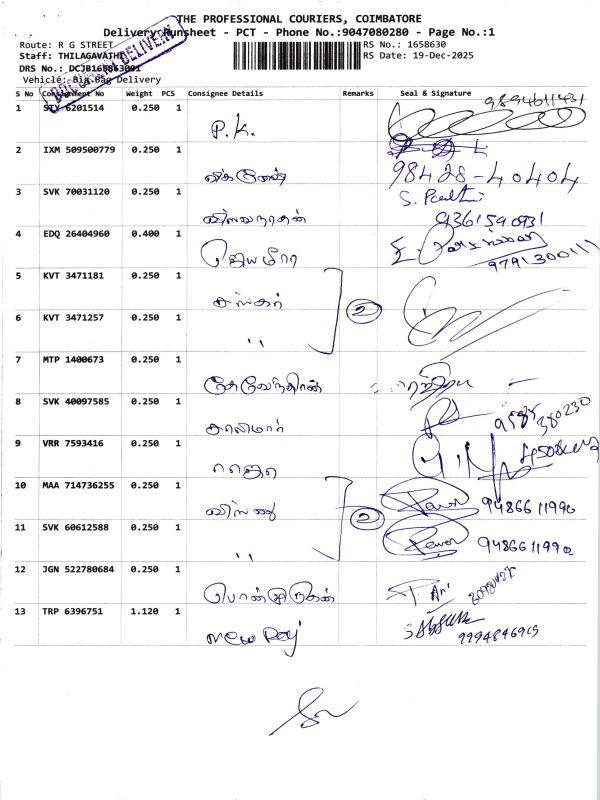 THE PROFESSIONAL COURIERS, COIMBATORE
Delivery Runsheet - PCT - Phone No.:9047080280 - Page No.:1
Route: R G STREET
RS No.: 1658630
Staff: THILAGAVATHI
RS Date: 19-Dec-2025
DRS No.: DCJB1658630
Vehicle: Big Bag Delivery
DELIVERY
S No Consignment No Weight PCS Consignee Details Remarks Seal & Signature
1 6201514 0.250 1 P.K. 9894611431
2 IXM 509500779 0.250 1 கணேஷ் 98428-40404
3 SVK 70031120 0.250 1 விஸ்வநாதன் 9361590931
4 EDQ 26404960 0.400 1 ஜெயமீரா 9791300111
5 KVT 3471181 0.250 1 சங்கர் 2
6 KVT 3471257 0.250 1 "
7 MTP 1400673 0.250 1
8 SVK 40097585 0.250 1 சாலிமார்
9 VRR 7593416 0.250 1
10 MAA 714736255 0.250 1 விஷ்ணு 2
11 SVK 60612588 0.250 1 "
12 JGN 522780684 0.250 1 பொன்முருகன்
13 TRP 6396751 1.120 1 New Raj 9994846919